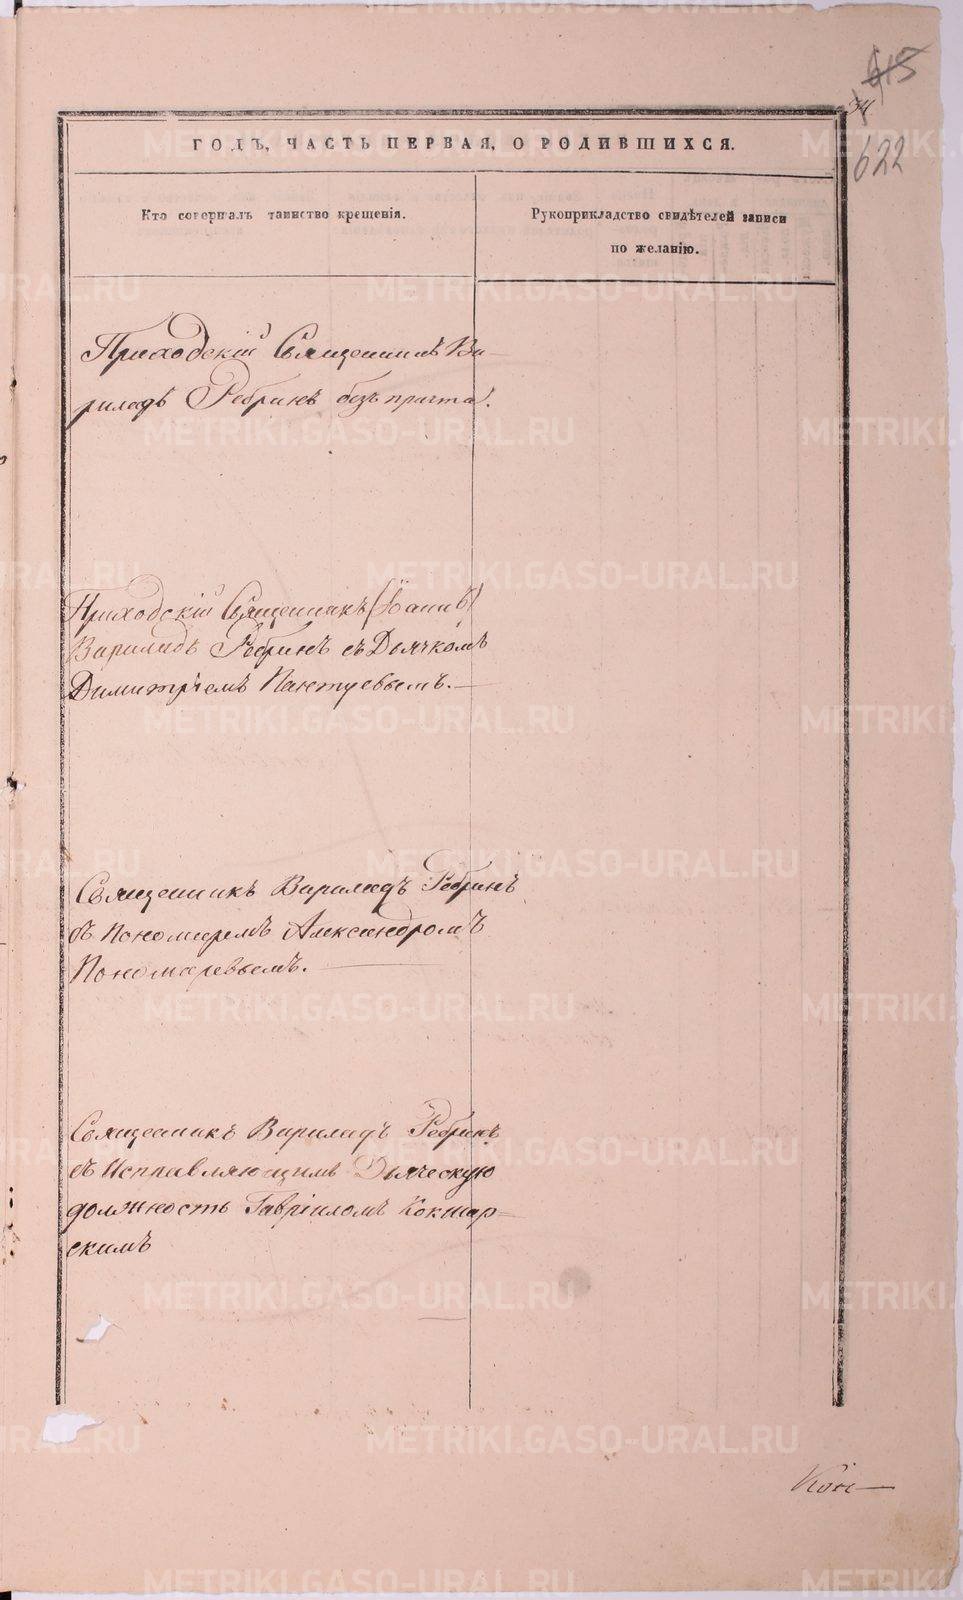 615
34
622
ГОДЪ, ЧАСТЬ ПЕРВАЯ, О РОДИВШИХСЯ.
Кто совершалъ таинство крещенія.
Рукоприкладство свидѣтелей записи
по желанію.
Приходскій Священникъ Ва-
рлаадъ Ребринъ безъ причта.
Приходскій Священникъ (Іоаннъ)
Варлаадъ Ребринъ съ Дьячкомъ
Димитріемъ Пантуевымъ.—
Священникъ Варлаадъ Ребринъ
съ Пономаремъ Александромъ
Пономаревымъ.
Священникъ Варлаадъ Ребринъ
съ Исправляющимъ Дьяческую
должность Гавріиломъ Кокшар-
скимъ
METRIKI.GASO-URAL.RU